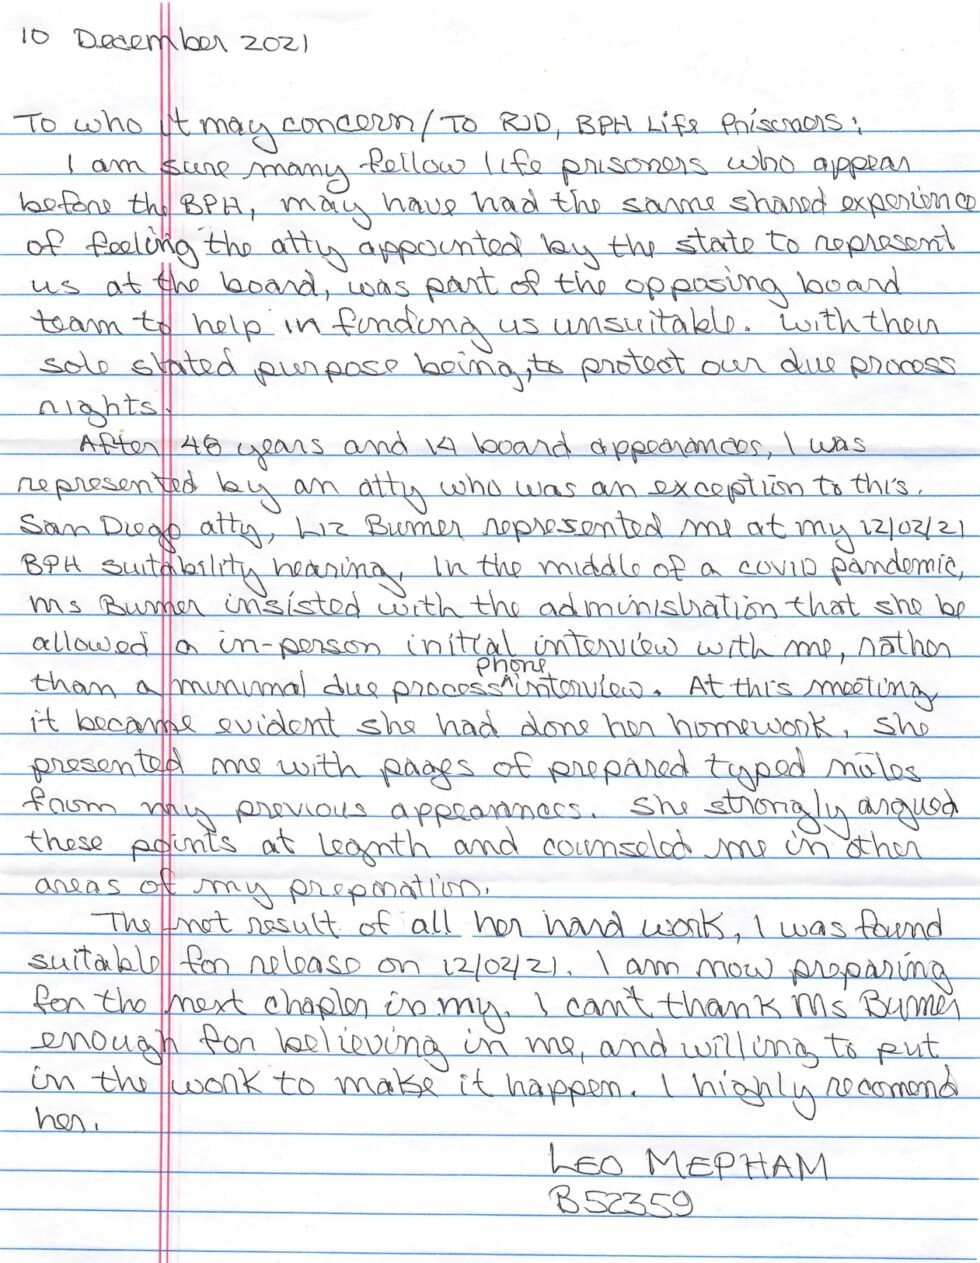 10 December 2021
To who it may concern/To RJD, BPH Life Prisoners:
I am sure many fellow life prisoners who appear
before the BPH, may have had the same shared experience
of feeling the atty appointed by the state to represent
us at the board, was part of the opposing board
team to help in finding us unsuitable. With their
sole stated purpose being, to protect our due process
rights.
After 48 years and 14 board appearances, I was
represented by an atty who was an exception to this.
San Diego atty, Liz Burner represented me at my 12/02/21
BPH suitability hearing. In the middle of a covid pandemic,
Ms Burner insisted with the administration that she be
allowed a in-person initial interview with me, rather
than a minimal due process phone interview. At this meeting
it became evident she had done her homework. She
presented me with pages of prepared typed notes
from my previous appearances. She strongly argued
these points at legnth and counseled me in other
areas of my preparation.
The net result of all her hard work, I was found
suitable for release on 12/02/21. I am now preparing
for the next chapter in my. I can't thank Ms Burner
enough for believing in me, and willing to put
in the work to make it happen. I highly recomend
her.
LEO MEPHAM
B52359